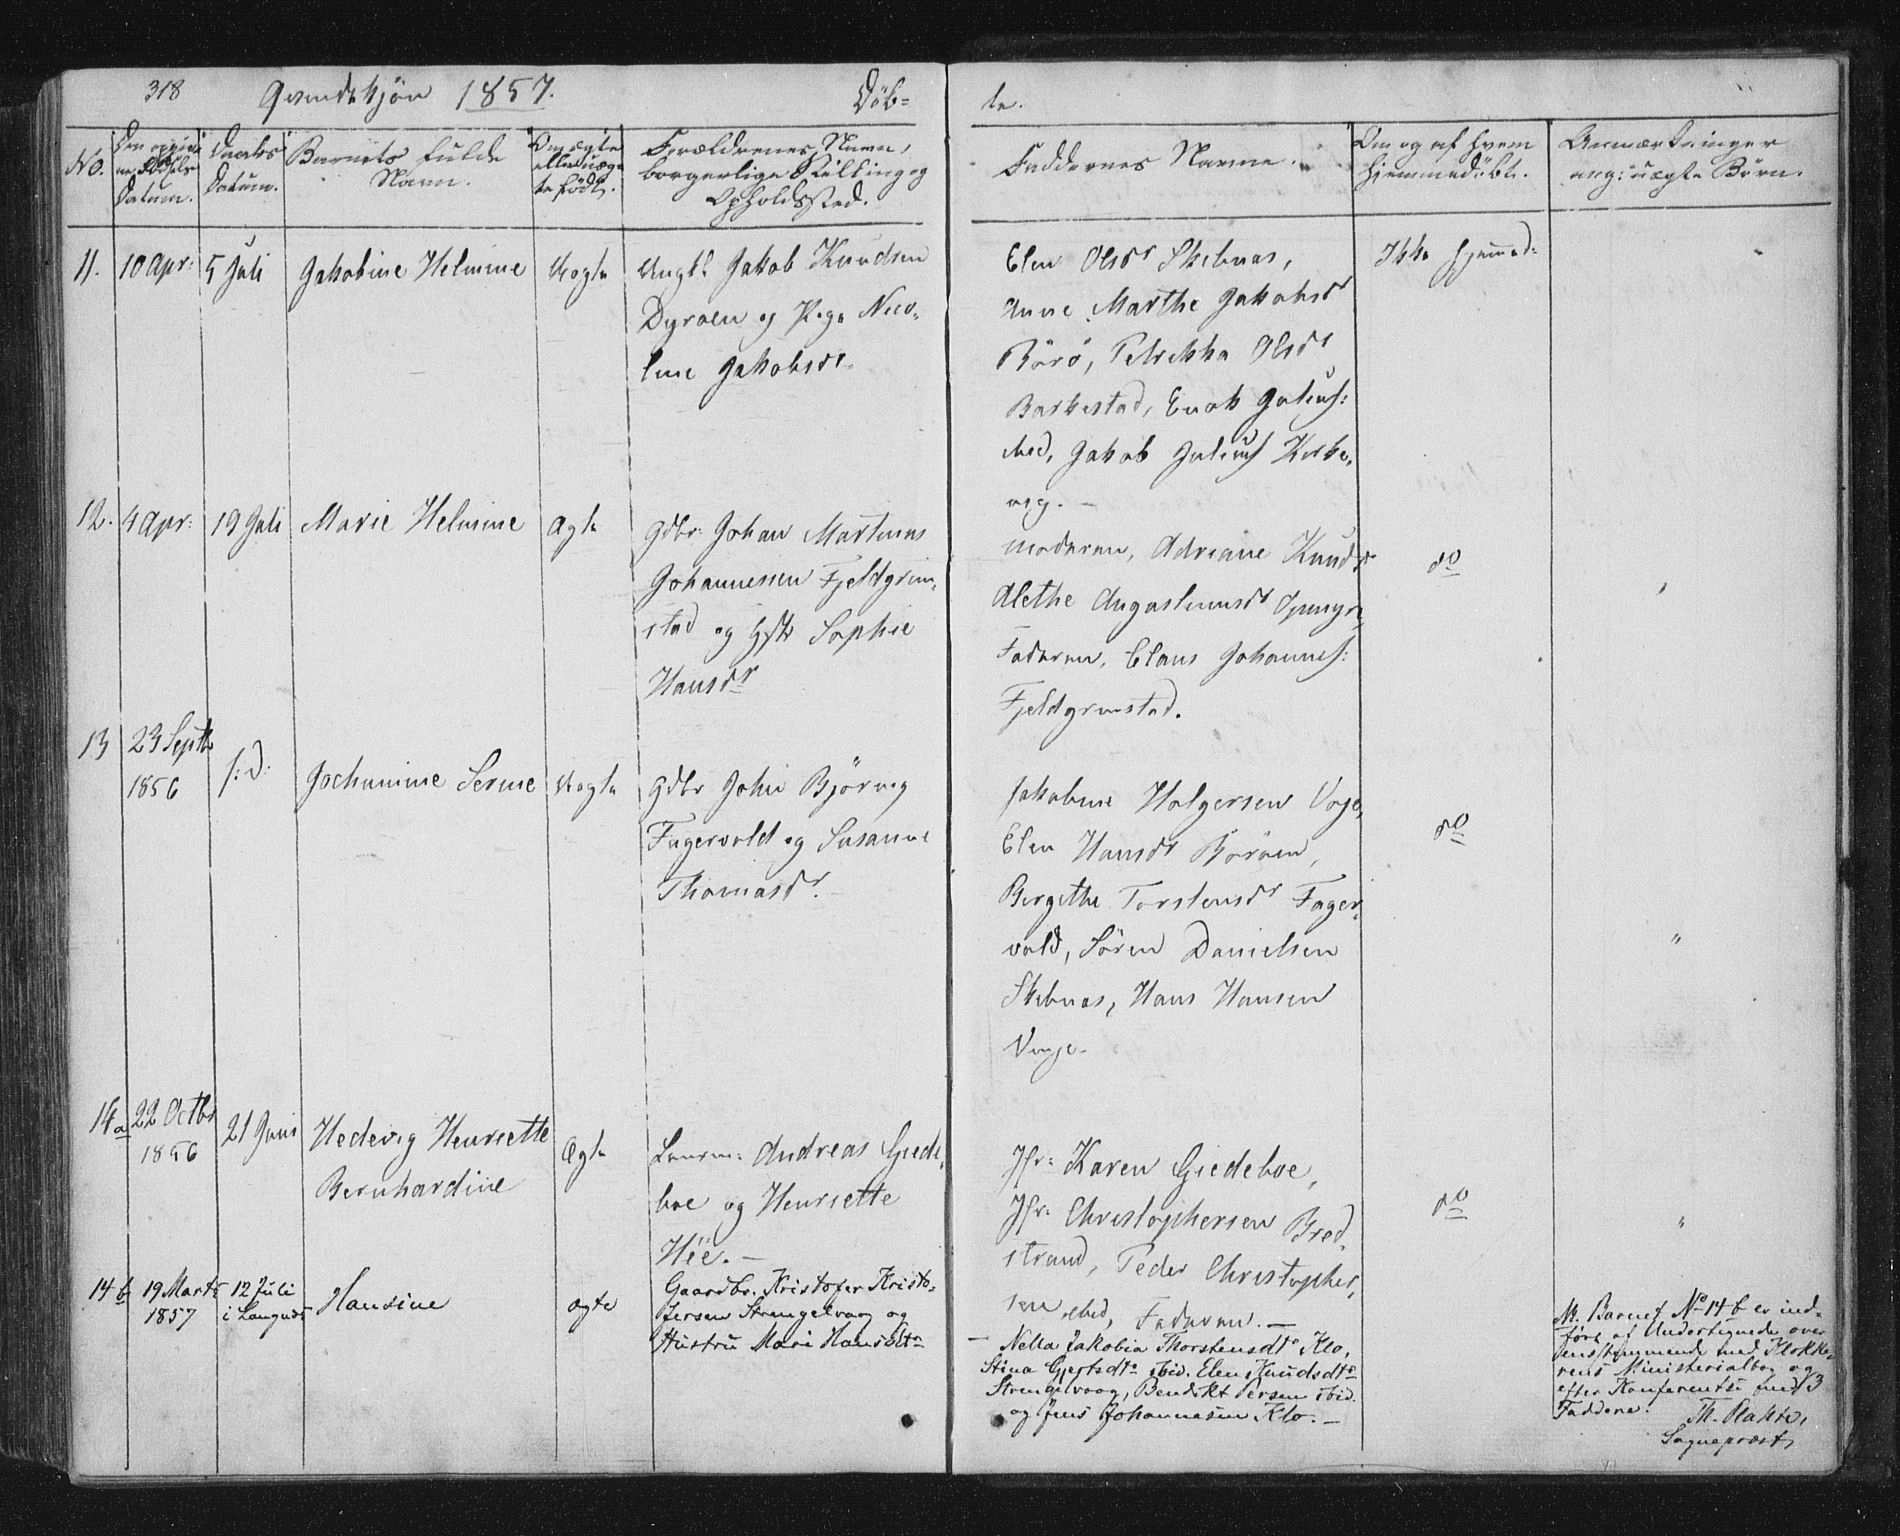 318 Qvindekjøn 1857. Døb-
te.
No.
Den opgiv-
ne Fødsels
Datum.
Daabs
Datum.
Barnets fulde
Navn.
Om ægte
eller uæg-
te født.
Forældrenes Navn,
borgerlige Stilling og
Opholdssted.
Faddernes Navne.
Om og af hvem
hjemmedøbt.
Anmærkninger
ang: uægte Børn.
11. 10 Apr: 5 Juli Jakobine Helmine Uægte
Ungkl Jakob Knudsen
Dyrøen og Pige Nico-
line Jakobsdr.
Elen Olsdr Skibnæs,
Anne Marthe Jakobsdr
Börö, Petrikka Olsdr
Barkestad, Enok Juliuss:
ibid, Jakob Juliuss Kirke-
vig. –
Ikke hjemmed:
12. 4 Apr: 19 Juli Marie Helmine Ægte
Gdbr. Johan Martinus
Johannessen Fjeldgrim-
stad og Hstr Sophie
Hansdr
Moderen, Adriane Knudsdr
Alethe Augustinusdr
Faderen, Claus Johanness:
Fjeldgrimstad.
do
13 23 Septbr
1856
s: D: Jochumine Serine Uægte
Gdbr John Björvig
Fagervold og Susanne
Thomasdr. –
Jakobine Holgersen Vaje,
Elen Hansdr Börøen,
Bergithe Torstensdr Fager-
vold, Sören Danielsen
Skibnæs, Hans Hansen
Vaaje.
do
"
14 a 22 Octbr
1856
21 Juni Hedevig Henriette
Bernhardine
Ægte
Andreas Giede-
boe og Henriette
Hëe. –
Jfr: Karen Giedeboe,
Jfr: Christophersen Bred-
strand, Peder Christopher-
sen ibid, Faderen. –
do
"
14 b 19 Marts
1857
12 Juli
i Langnæs
Hansine ægte
Gaardbr. Kristofer Kristo-
fersen Strengelvaag og
Hustru Mari Hansdtr
– Nella Jakobia Thorstensdtr Klo,
Stina Gjertsdtr ibid. Elen Knudsdtr
Strengelvaag, Bendikt Persen ibid.
og Jens Johannesen Klo. –
M. Barnet No 14 b er ind-
ført af Undertegnede over-
ensstemmende med Klokke-
rens Ministerialbog og
efter Konferentse med 3
Faddere.
Sogneprest